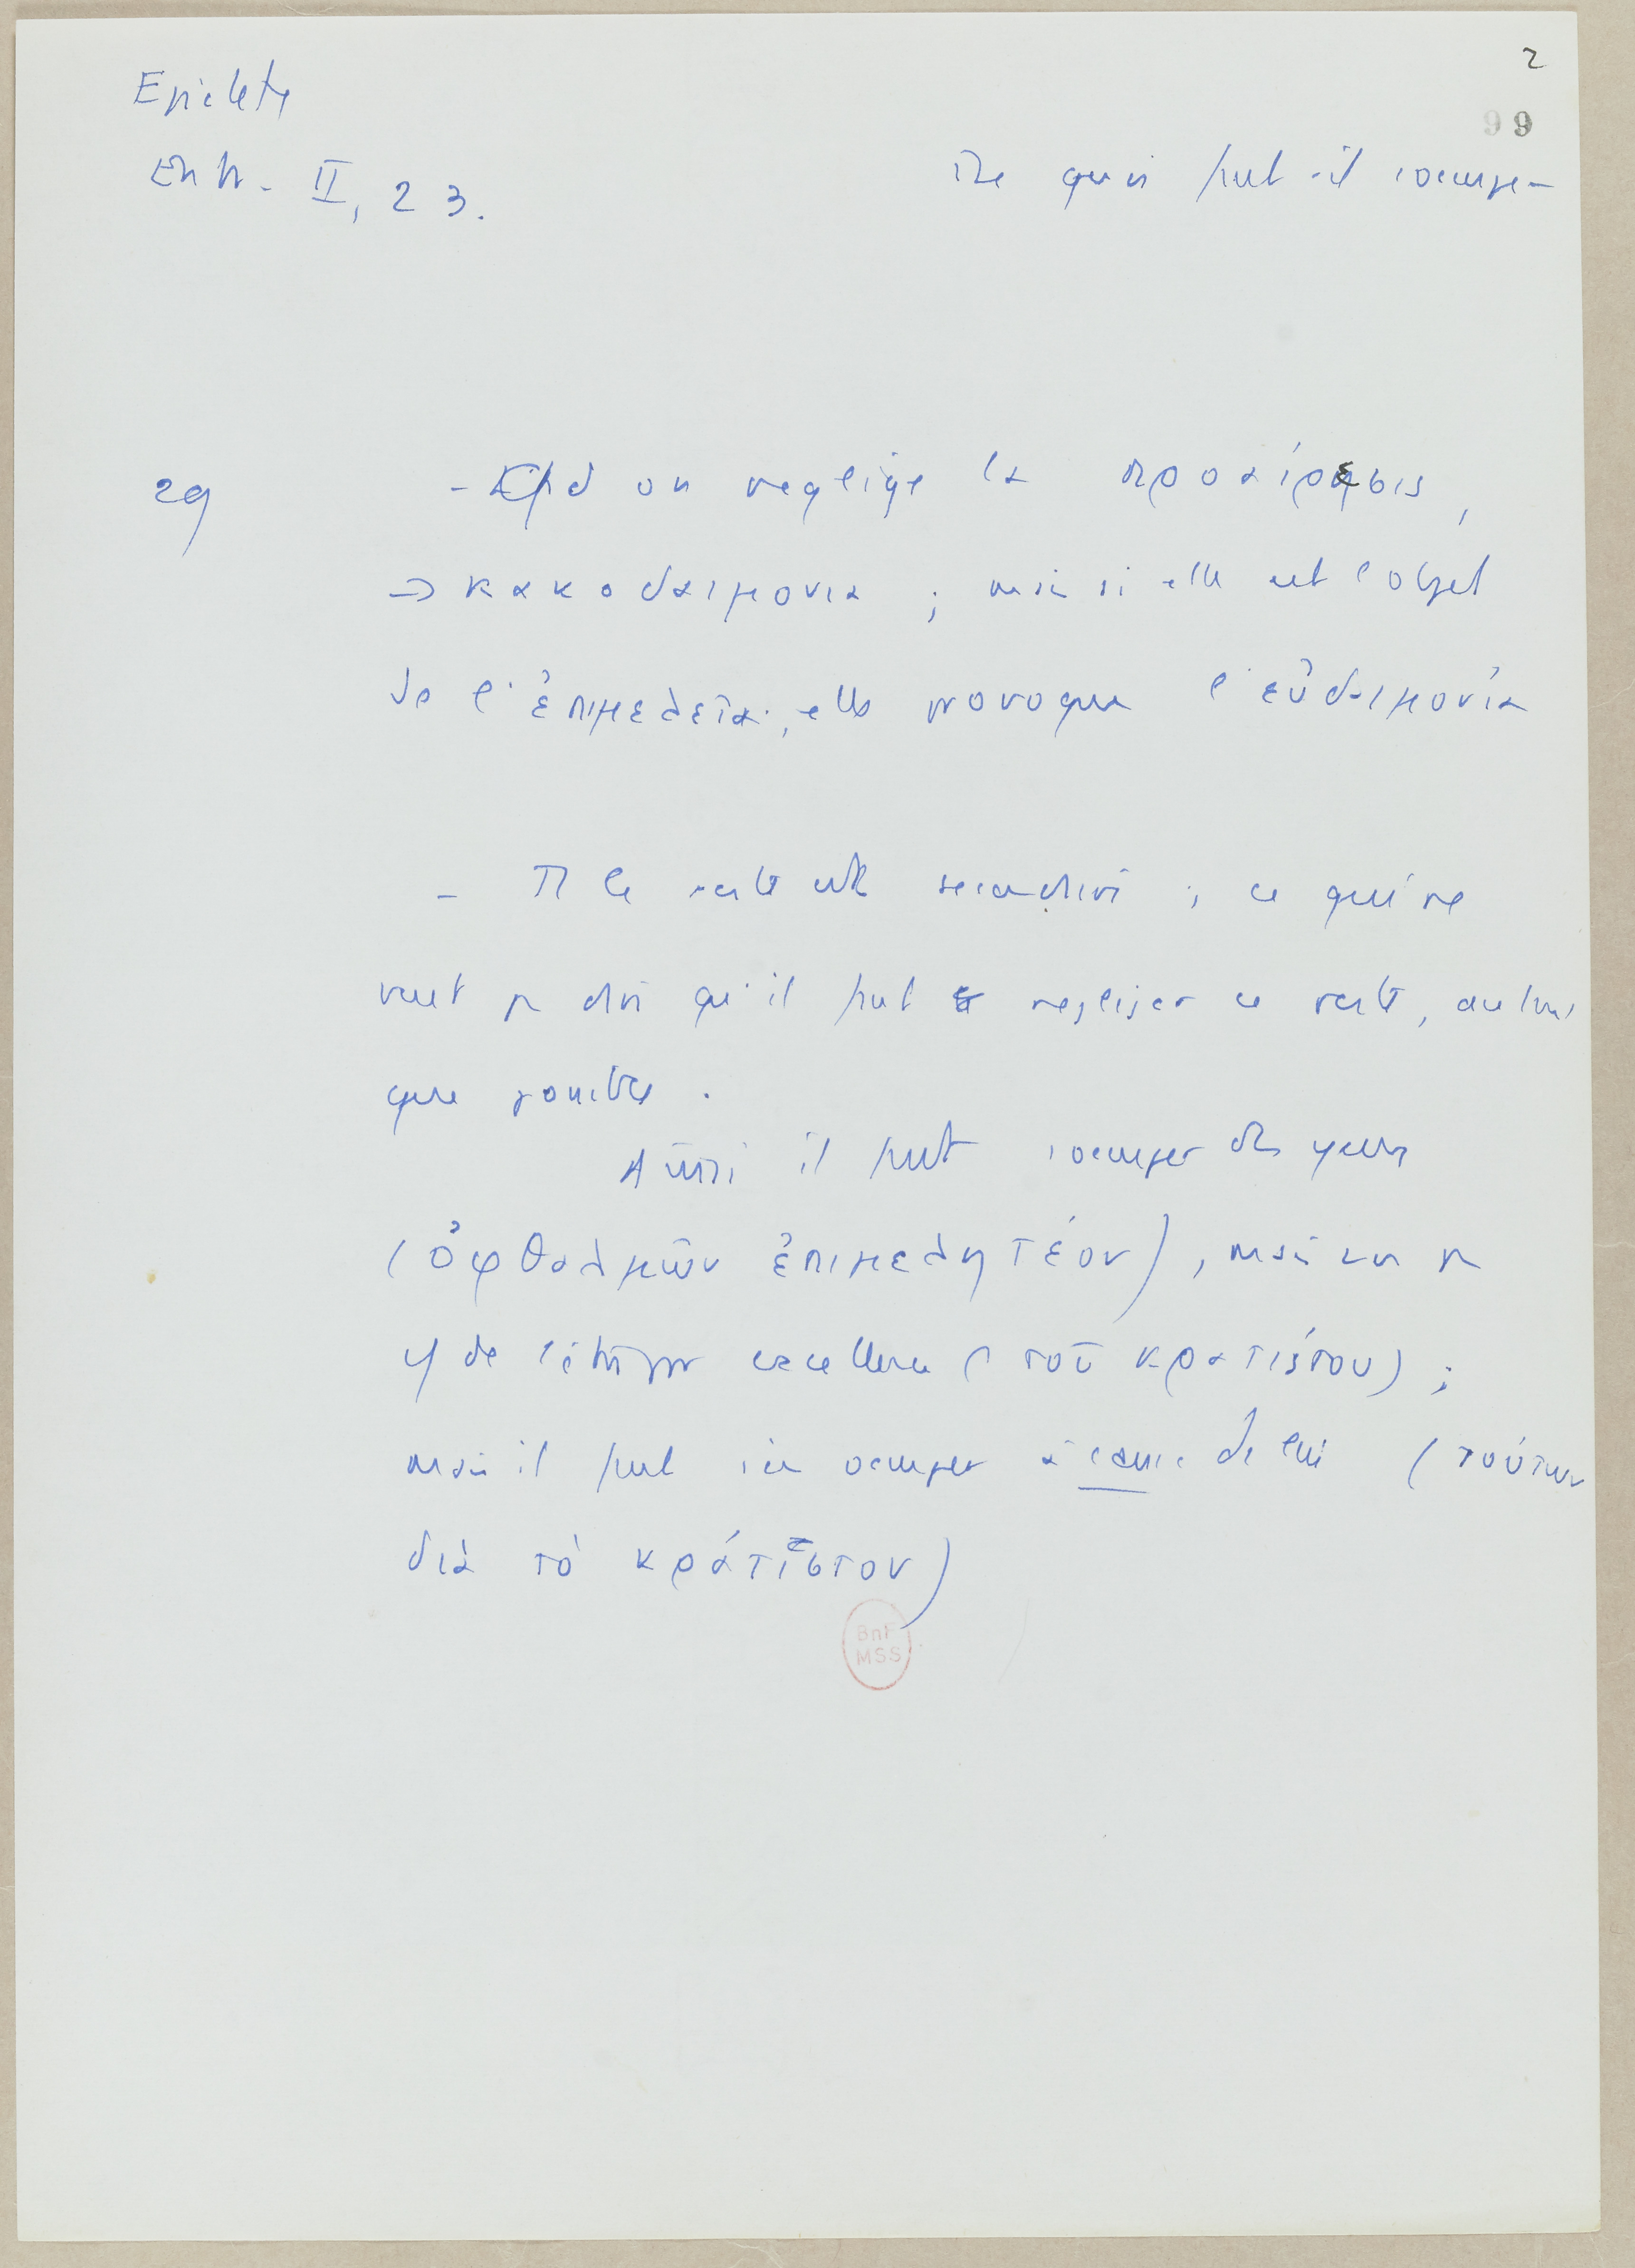 2
99
Epictete
Entr. II, 23.
De quoi faut-il s'occuper
29
- Qd on neglige la προαίρεσις,
→ κακοδαιμονια ; mais si elle est l'objet
de l'ἐπιμελεῖα, elle provoque l'εὐδαιμονία
- Tt le reste est secondaire ; ce qui ne
veut pas dire qu'il faut negliger ce reste, au tant
que possible.
Ainsi il faut s'occuper des yeux
(ὀφθαλμῶν ἐπιμελητέον), mais non pas
de excellence (τοῦ κρατίστου) ;
mais il faut s'en occuper à cause de lui (τούτων
διὰ τὸ κράτιστον)
BnF
MSS